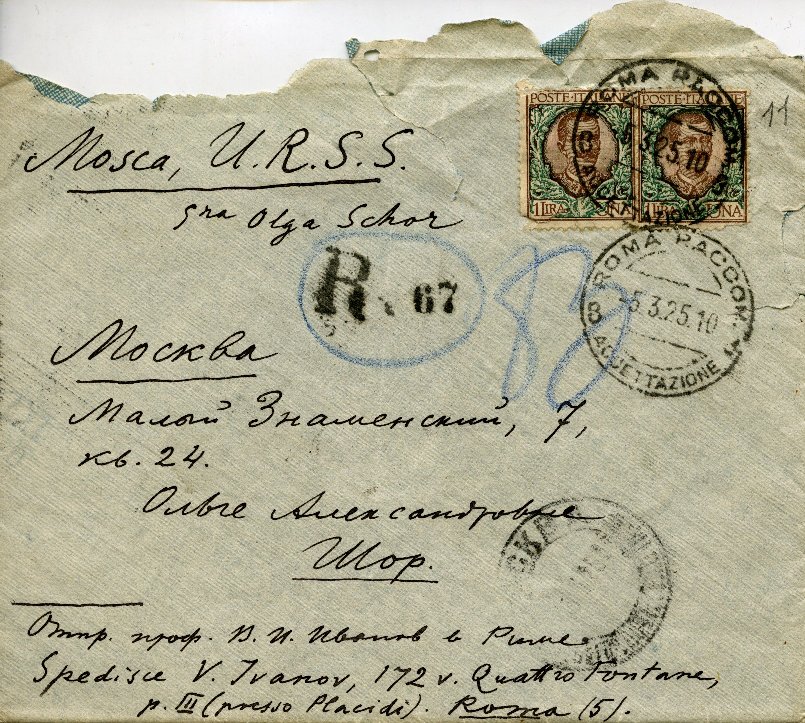 POSTE ITALIANE POSTE ITALIANE
1 LIRA UNA 1 LIRA UNA
ROMA RACCOM.
8 5.3.25.10
ACCETTAZIONE
11
Mosca, U.R.S.S.
gra Olga Schor
R 67
ROMA RACCOM.
8 -5.3.25.10
ACCETTAZIONE
Москва
Малый Знаменский, 7,
кв. 24.
Ольге Александровне
Шор.
Отпр. проф. В. И. Иванов в Риме
Spedisce V. Ivanov, 172 v. Quattro Fontane,
p. III (presso Placidi). Roma (5).